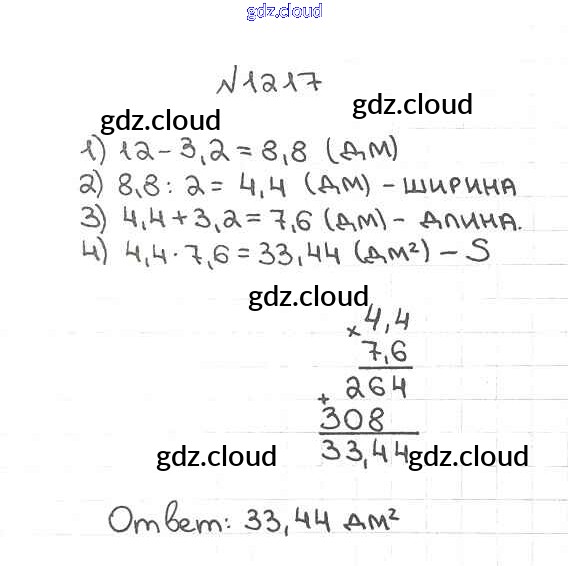 gdz.cloud
№1217
gdz.cloud gdz.cloud
1) 12 - 3,2 = 8,8 (дм)
2) 8,8 : 2 = 4,4 (дм) - ширина
3) 4,4 + 3,2 = 7,6 (дм) - длина.
4) 4,4 · 7,6 = 33,44 (дм²) - S
gdz.cloud
× 4,4
7,6
264
+
308
33,44
gdz.cloud gdz.cloud
Ответ: 33,44 дм²